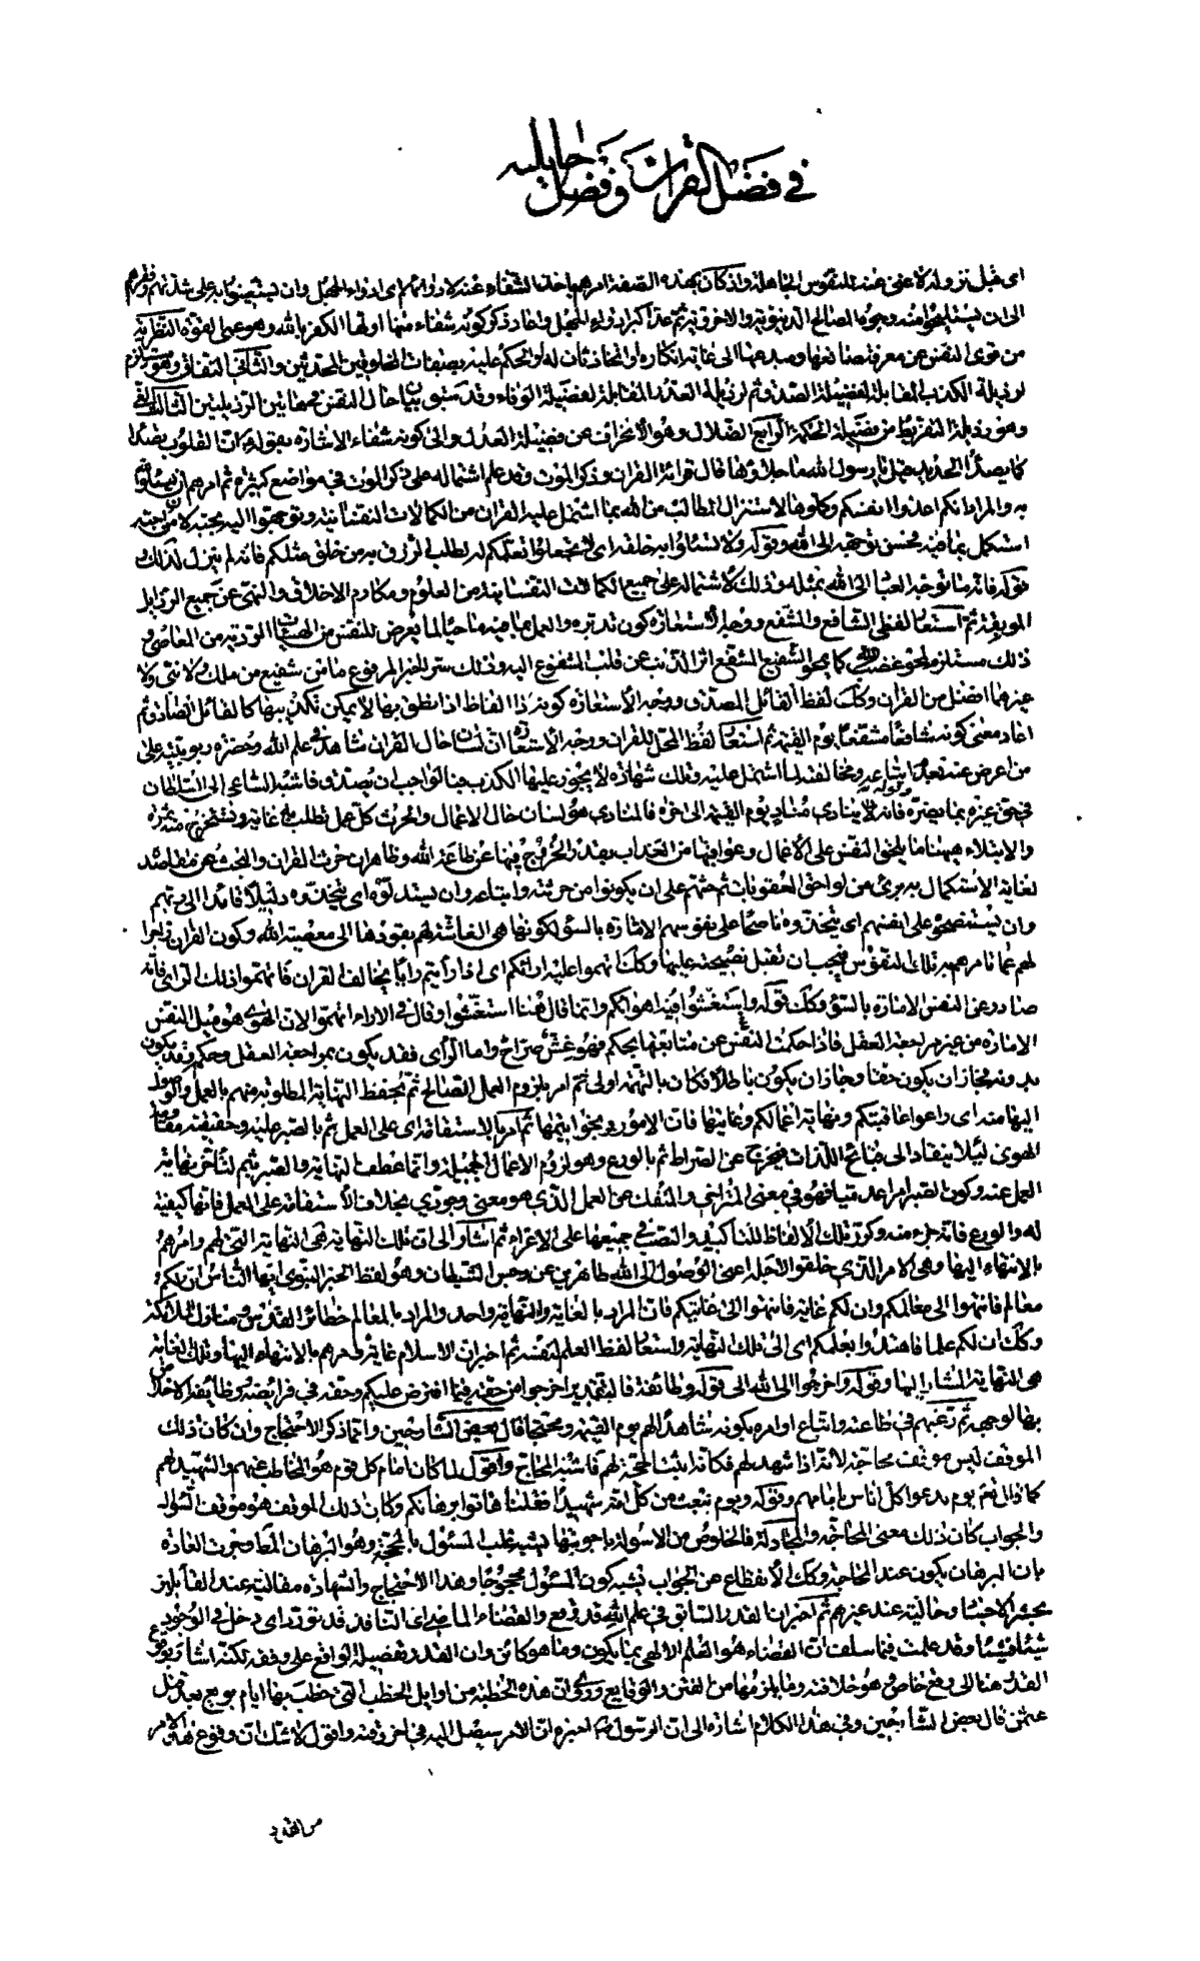 في فضل القرآن وفضل حامليه
اى قبل نزوله لا غنى عنه للنفوس الجاهلة واذ كان بهذه الصفة امرهم باخذ الشفاء عنه لادوائهم اى ادواء الجهل وان يستعينوا به على شدتهم وفقرهم
الى ان يستليحوا منه وجوه المصالح الدنيوية والاخروية ثم عد اكبر ادواء الجهل واعاد ذكر كونه شفاء منها اولها الكفر بالله وهو عمى القوة النظرية
من قوى النفس عن معرفة صانعها ومبدعها الى غاية انكاره او اتخاذ ثان له او الحكم عليه بصفات المخلوقين المحدثين والثاني النفاق وهو مستلزم
لرذيلة الكذب المقابلة لفضيلة الصدق ثم لرذيلة الغدر المقابلة لفضيلة الوفاء وقد سبق بيان حال النفس في هاتين الرذيلتين الثالث الغي
وهو رذيلة التفريط من فضيلة الحكمة الرابع الضلال وهو الانحراف عن فضيلة العدل والى كونه شفاء الاشارة بقوله ان القلوب تصدأ
كما يصدأ الحديد قيل يا رسول الله ما جلاؤها قال قراءة القران وذكر الموت وقد علم اشتماله على ذكر الموت في مواضع كثيرة ثم امرهم ان يسئلوا الله
به والمراد انكم اعدوا انفسكم وكملوها لاستنزال المطالب من الله بما اشتمل عليه القران من الكمالات النفسانية وتوجهوا اليه بحبه لان من احبه
استكمل بما فيه فحسن توجهه الى الله وقوله ولا تسئلوا به خلقه اى لا تجعلوا تعلمكم له لطلب الرزق به من خلق مثلكم فانه لم ينزل لذلك
قوله فانه ما توجه العباد الى الله بمثله وذلك لاشتماله على جميع الكمالات النفسانية من العلوم ومكارم الاخلاق والنهى عن جميع الرذايل
الموبقة ثم استعار لفظى الشافع والمشفع ووجه الاستعارة كون تدبره والعمل بما فيه ماحيا لما يعرض للنفس من الهيئات الردية من المعاصى و
ذلك مستلزم لمحو غضب الله كما يمحو الشفيع المشفع اثر الذنب عن قلب المشفوع اليه وذلك سر الخبر المرفوع ما من شفيع من ملك ولا نبى ولا
غيرهما افضل من القران وكذلك لفظ القائل المصدق ووجه الاستعارة كونه ذا الفاظ اذا نطق بها لا يمكن تكذيبها كالقائل الصادق ثم
اعاد معنى كونه شافعا مشفعا يوم القيمة ثم استعار لفظ المحل للقران ووجه الاستعارة ان لسان حال القران شاهد في علم الله وحضرة ربوبيته على
من اعرض عنه بعدم اتباعه ومخالفته لما اشتمل عليه وتلك شهادة لا يجوز عليها الكذب فبالواجب ان يصدق فاشبه الساعى الى السلطان
في حق غيره بما يضره وقوله فانه ينادى مناد يوم القيمة الى اخره فالمنادى هو لسان حال الاعمال والحرث كل عمل تطلب به غاية وتستخرج منه ثمرة
والابتلاء هيهنا ما يلحق النفس على الاعمال وعواقبها من العذاب بقدر الخروج فيها عن طاعة الله وظاهر ان حرث القران والبحث عن مقاصده
لغاية الاستكمال به برئ من لواحق العقوبات ثم حثهم على ان يكونوا من حرثته واتباعه وان يستدلوه اى يتخذوه دليلا قائدا الى ربهم
وان يستنصحوه على انفسهم اى يتخذوه ناصحا على نفوسهم الامارة بالسوء لكونها هى الغاشة لهم بقودها الى معصية الله وكون القران زاجرا
لهم عما تامرهم به تلك النفوس فيجب ان تقبل نصيحته عليها وكذلك اتهموا عليه ارائكم اى اذا رأيتم رايا يخالف القران فاتهموا ذلك الراى فانه
صادر عن النفس الامارة بالسوء وكذلك قوله واستغشوا فيه اهوائكم وانما قال هنا استغشوا وقال في الاراء اتهموا لان الهوى هو ميل النفس
الامارة من غير مراجعة العقل فاذا حكمت النفس عن متابعتها بحكم فهو غش صراح واما الراى فقد يكون بمراجعة العقل وحكمه وقد يكون
بدونه فجاز ان يكون حقا وجاز ان يكون باطلا فكان بالتهمة اولى ثم امر بلزوم العمل الصالح ثم بحفظ النهاية المطلوبة منهم بالعمل والوصول
اليها منه اى راعوا عاقبتكم ونهاية اعمالكم وغايتها فان الامور بخواتيمها ثم امر بالاستقامة اى على العمل ثم بالصبر عليه وحقيقته مقاومة
الهوى لئلا ينقاد الى قبائح اللذات فيخرج عن الصراط ثم بالورع وهو لزوم الاعمال الجميلة وانما عطف النهاية والصبر بثم لتأخر نهاية
العمل عنه وكون الصبر امرا عدميا فهو في معنى المتراخى والمنفك عن العمل الذى هو معنى وجودى بخلاف الاستقامة على العمل فانها كيفية
له والورع فانه جزء منه وكرر تلك الالفاظ للتأكيد والنصب في جميعها على الاغراء ثم اشار الى ان تلك النهاية هى النهاية التى لهم وامرهم
بالانتهاء اليها وهى الامر الذى خلقوا لاجله اعنى الوصول الى الله طاهرين عن رجس الشيطان وهو لفظ الخبر النبوى ايها الناس ان لكم
معالم فانتهوا الى معالمكم وان لكم غاية فانتهوا الى غايتكم فان المراد بالغاية والنهاية واحد والمراد بالمعالم حظائر القدس ومنازل الملائكة
وكذلك ان لكم علما فاهتدوا بعلمكم اى الى تلك النهاية واستعار لفظ العلم لنفسه ثم اخبر ان للاسلام غاية وامرهم بالانتهاء اليها وتلك الغاية
هى النهاية المشار اليها وقوله واخرجوا الى الله الى قوله وظائفه فالتقدير اخرجوا من حقه فيما افترض عليكم وحقه في فرايضه ووظايفه الاخلاص
بها لوجهه ثم رغبهم في طاعته واتباع اوامره بكونه شاهدا لهم يوم القيمة ومحتجا قال بعض الشارحين وانما ذكر الاحتجاج وان كان ذلك
الموقف ليس موقف محاجة لانه اذا شهد لهم فكانه اثبت الحجة لهم فاشبه المحاج واقول لما كان امام كل قوم هو المخاطب عنهم والشهيد لهم
كما قال تعم يوم ندعو كل اناس بامامهم وقوله ويوم نبعث من كل امة شهيدا فقلنا هاتوا برهانكم وكان ذلك الموقف هو موقف السؤال
والجواب كان ذلك معنى المحاجة والمجادلة فالخلوص من الاسولة باجوبتها يشبه غلب المسئول بالحجة وهو البرهان المعا ومن العادة
بان البرهان يكون عند المحاجة وكذلك الانقطاع عن الجواب يشبه كون المسئول محجوجا وهذا الاحتجاج والشهادة مقالية عند القائلين
بحشر الاجساد وحالية عند غيرهم ثم اخبر ان القدر السابق في علم الله قد وقع والقضاء الماضى اى النافذ قد تورد اى دخل في الوجود
شيئا فشيئا وقد علمت فيما سلف ان القضاء هو العلم الالهى بما يكون وما هو كائن وان القدر تفصيله الواقع على وفقه لكنه اشار بوقوع
القدر هنا الى وقع خاص هو خلافته وما يلزمها من الفتن والوقايع وروى ان هذه الخطبة من اوايل الخطب التى خطب بها ايام بويع بعد قتل
عثمن قال بعض الشارحين وفي هذا الكلام اشارة الى ان الرسول ص اخبره ان الامر سيصل اليه في اخر وقته واقول لا شك ان وقوع هذا الامر
من القدر